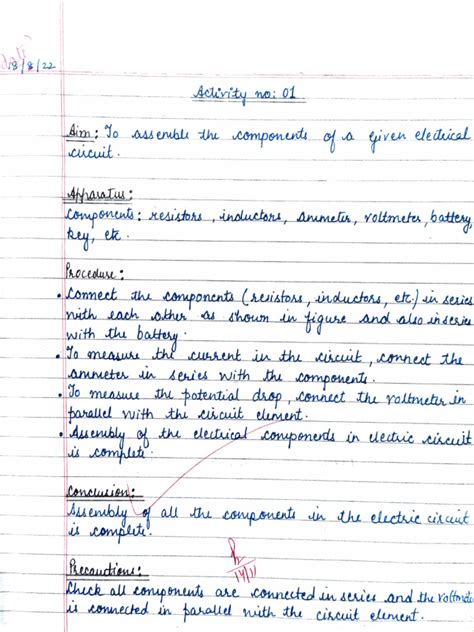 18/8/22
Activity no: 01
Aim: To assemble the components of a given electrical
circuit.
Apparatus:
Components: resistors, inductors, ammeter, voltmeter, battery,
key, etc.
Procedure:
• Connect the components (resistors, inductors, etc.) in series
with each other as shown in figure and also in series
with the battery.
• To measure the current in the circuit, connect the
ammeter in series with the components.
• To measure the potential drop, connect the voltmeter in
parallel with the circuit element.
• Assembly of the electrical components in electric circuit
is complete.
Conclusion:
Assembly of all the components in the electric circuit
is complete.
14/11
Precautions:
Check all components are connected in series and the voltmete
is connected in parallel with the circuit element.